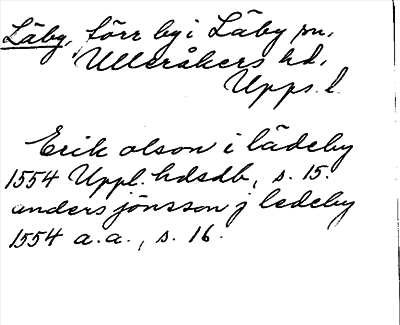 Läby, förr by i Läby sn,
Ulleråkers hd,
Upps. l.
Erik olson i lädeby
1554 Uppl. hdsdb, s. 15.
anders jönsson j ledeby
1554 a.a., s. 16.